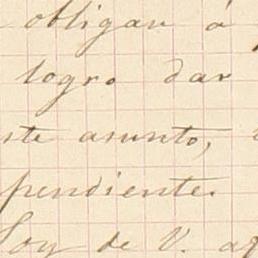 obligan á
logro dar
ste asunto,
pendiente.
Soy de V. af